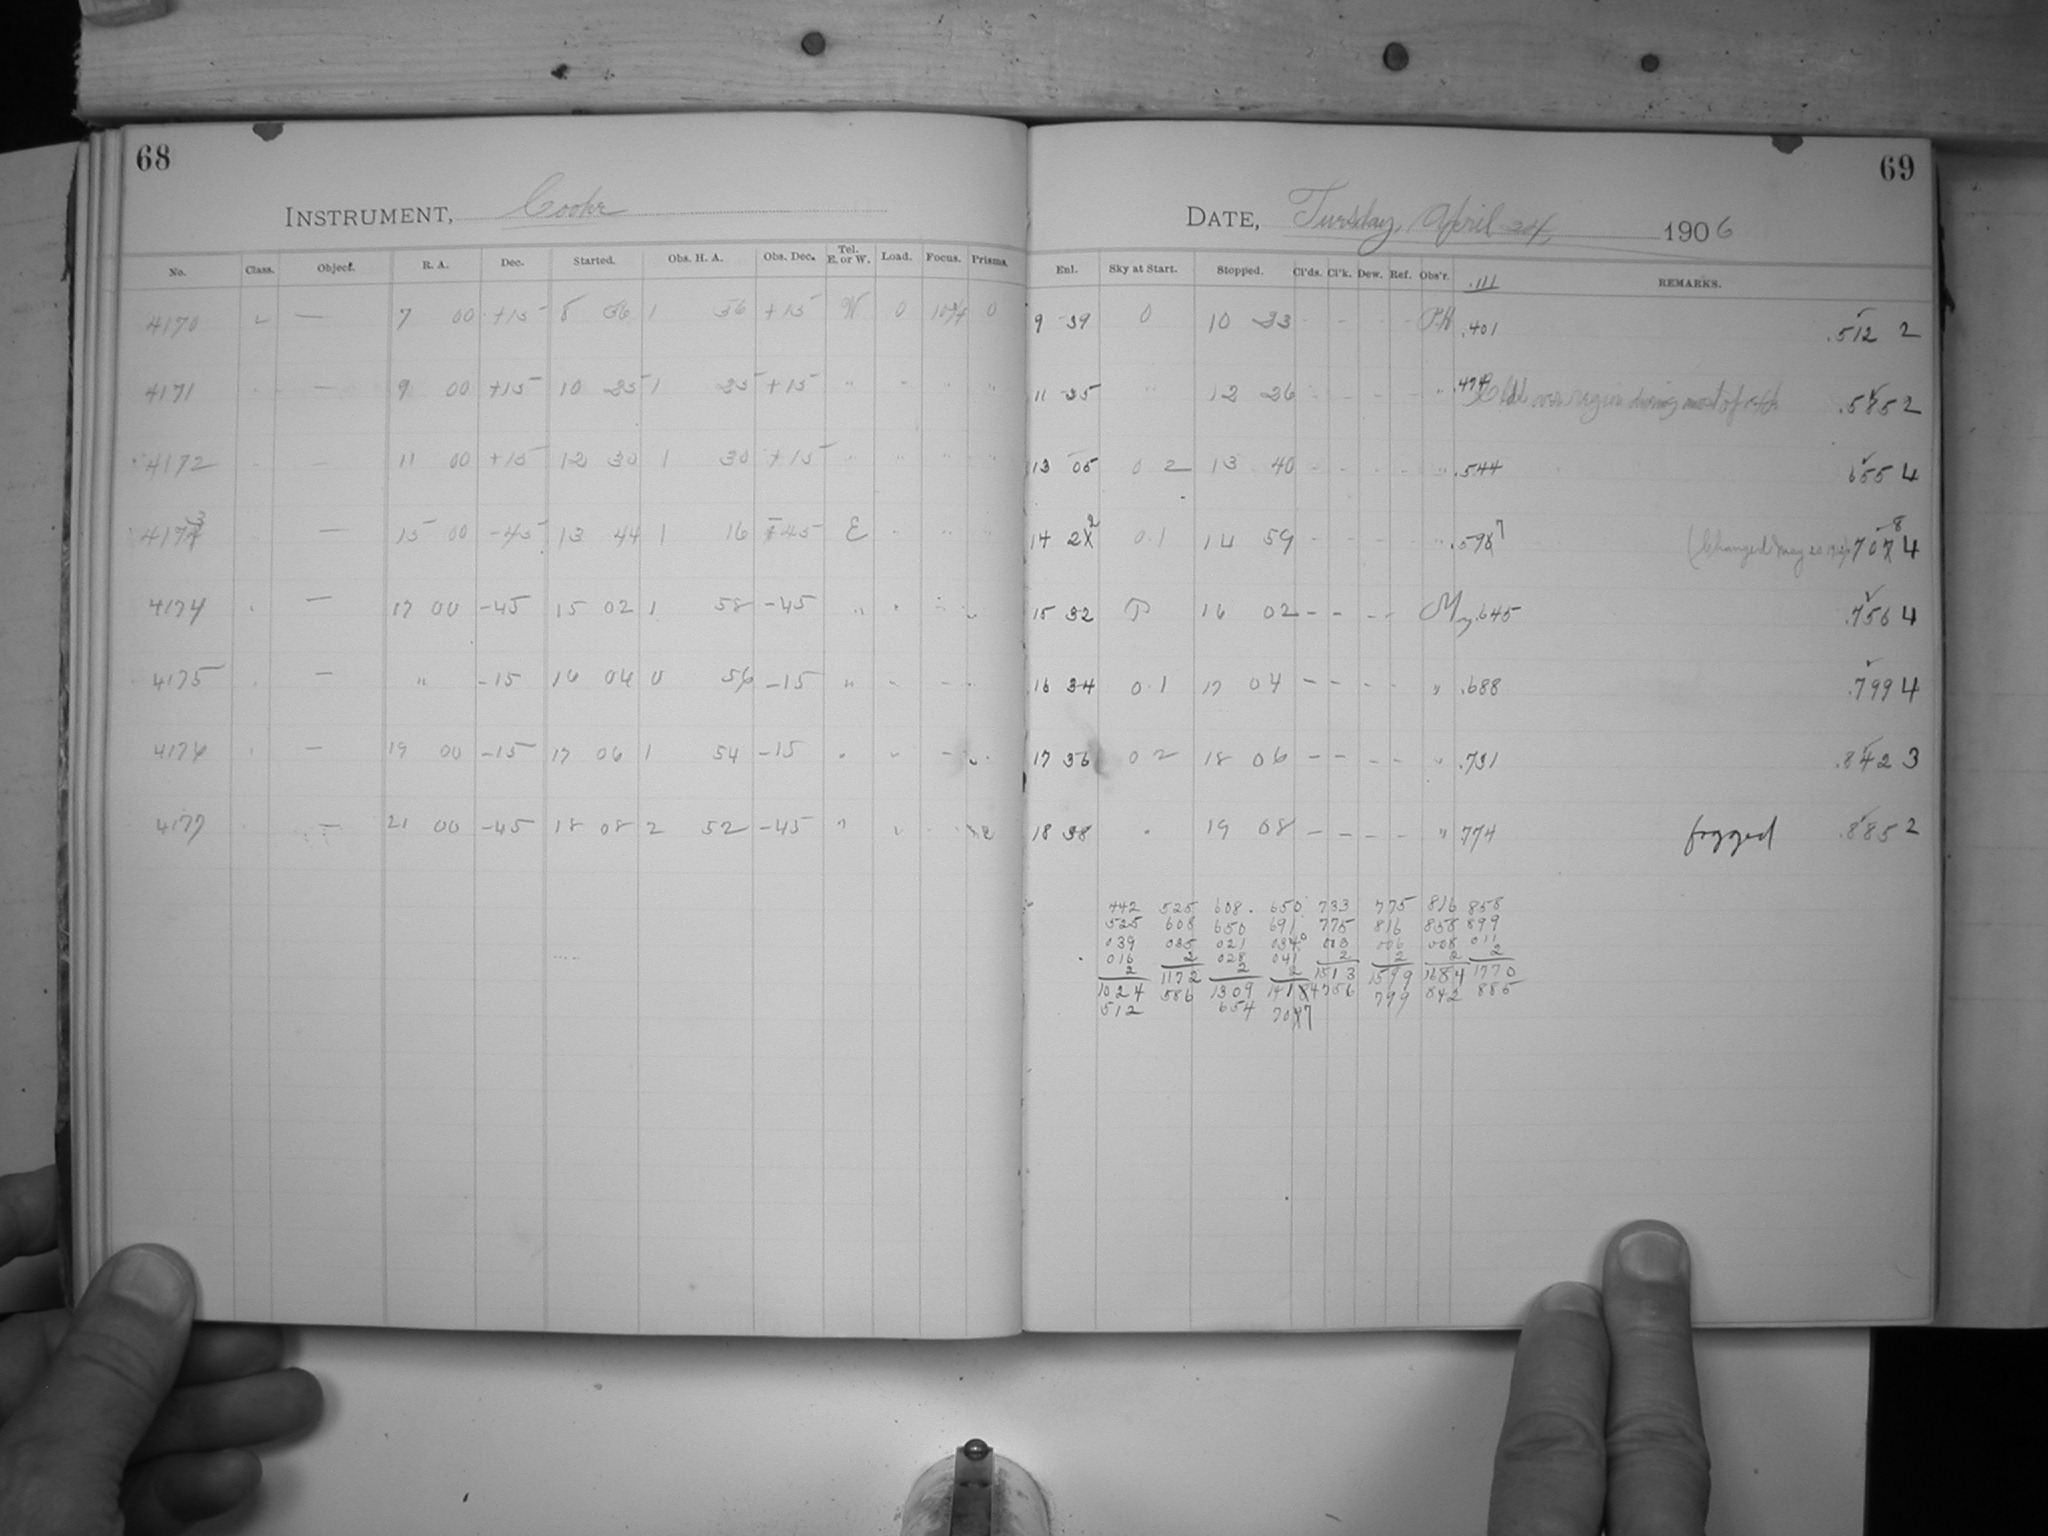 68
INSTRUMENT, Cooke
No. Class. Object. R. A. Dec. Started. Obs. H. A. Obs. Dec. Tel. E. or W. Load. Focus. Prisms.
4170 L — 7 00 +15 8 36 1 36 +15 W 0 0
4171 — 9 00 +15 10 35 1 35 +15 " " " "
4172 — 11 00 +15 12 30 1 30 +15 " " " "
4173 — 15 00 -45 13 44 1 16 -45 E " " "
4174 — 17 00 -45 15 02 1 58 -45 " " " "
4175 — " -15 16 04 0 56 -15 " " - "
4176 — 19 00 -15 17 06 1 54 -15 " " - "
4177 — 21 00 -45 18 08 2 52 -45 " "
69
DATE, Tuesday, April 24, 1906
Enl. Sky at Start. Stopped. Cl'ds. Cl'k. Dew. Ref. Obs'r. .111 REMARKS.
9 39 0 10 33 - - - - .401 .512 2
11 35 " 12 26 - - - - " .474 Clds over region during most of .585 2
13 05 0 2 13 40 - - - - " .544 655 4
14 22 0.1 14 59 - - - - " .597 (Changed May 20 .708 4
15 32 16 02 - - - - M .645 .756 4
16 34 0.1 17 04 - - - - " .688 .799 4
17 36 0 2 18 06 - - - - " .731 .842 3
18 38 " 19 08 - - - - " 774 fogged .885 2
442 525 608. 650 733 775 816 858
525 608 650 691 775 816 858 899
039 035 021 034 003 006 008 011
016 2 028 041 2 2 2 2
2 1172 2 2 1513 1599 1684 1770
1024 586 1309 1414 756 799 842 885
512 654 707